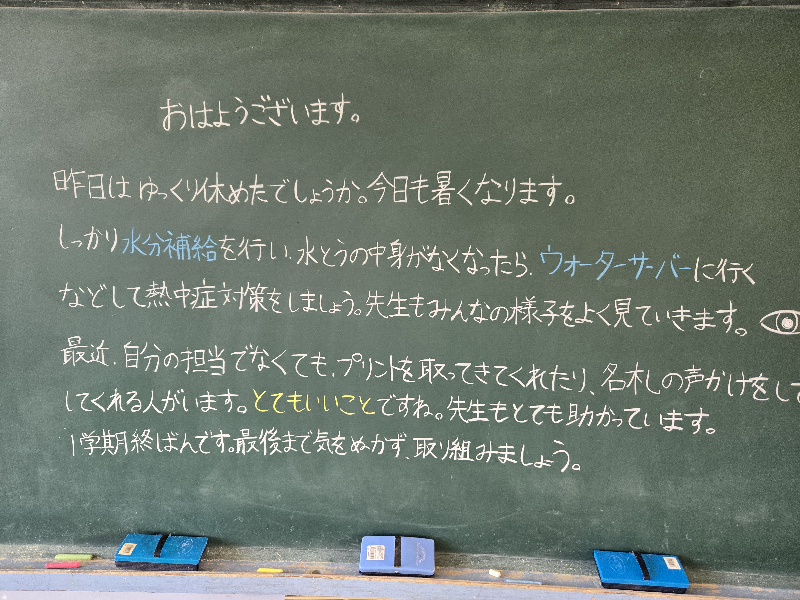 おはようございます。
昨日はゆっくり休めたでしょうか。今日も暑くなります。
しっかり水分補給を行い、水とうの中身がなくなったら、ウォーターサーバーに行く
などして熱中症対策をしましょう。先生もみんなの様子をよく見ていきます。
最近、自分の担当でなくても、プリントを取ってきてくれたり、名札しの声かけをして
してくれる人がいます。とてもいいことですね。先生もとても助かっています。
1学期終ばんです。最後まで気をぬかず、取り組みましょう。